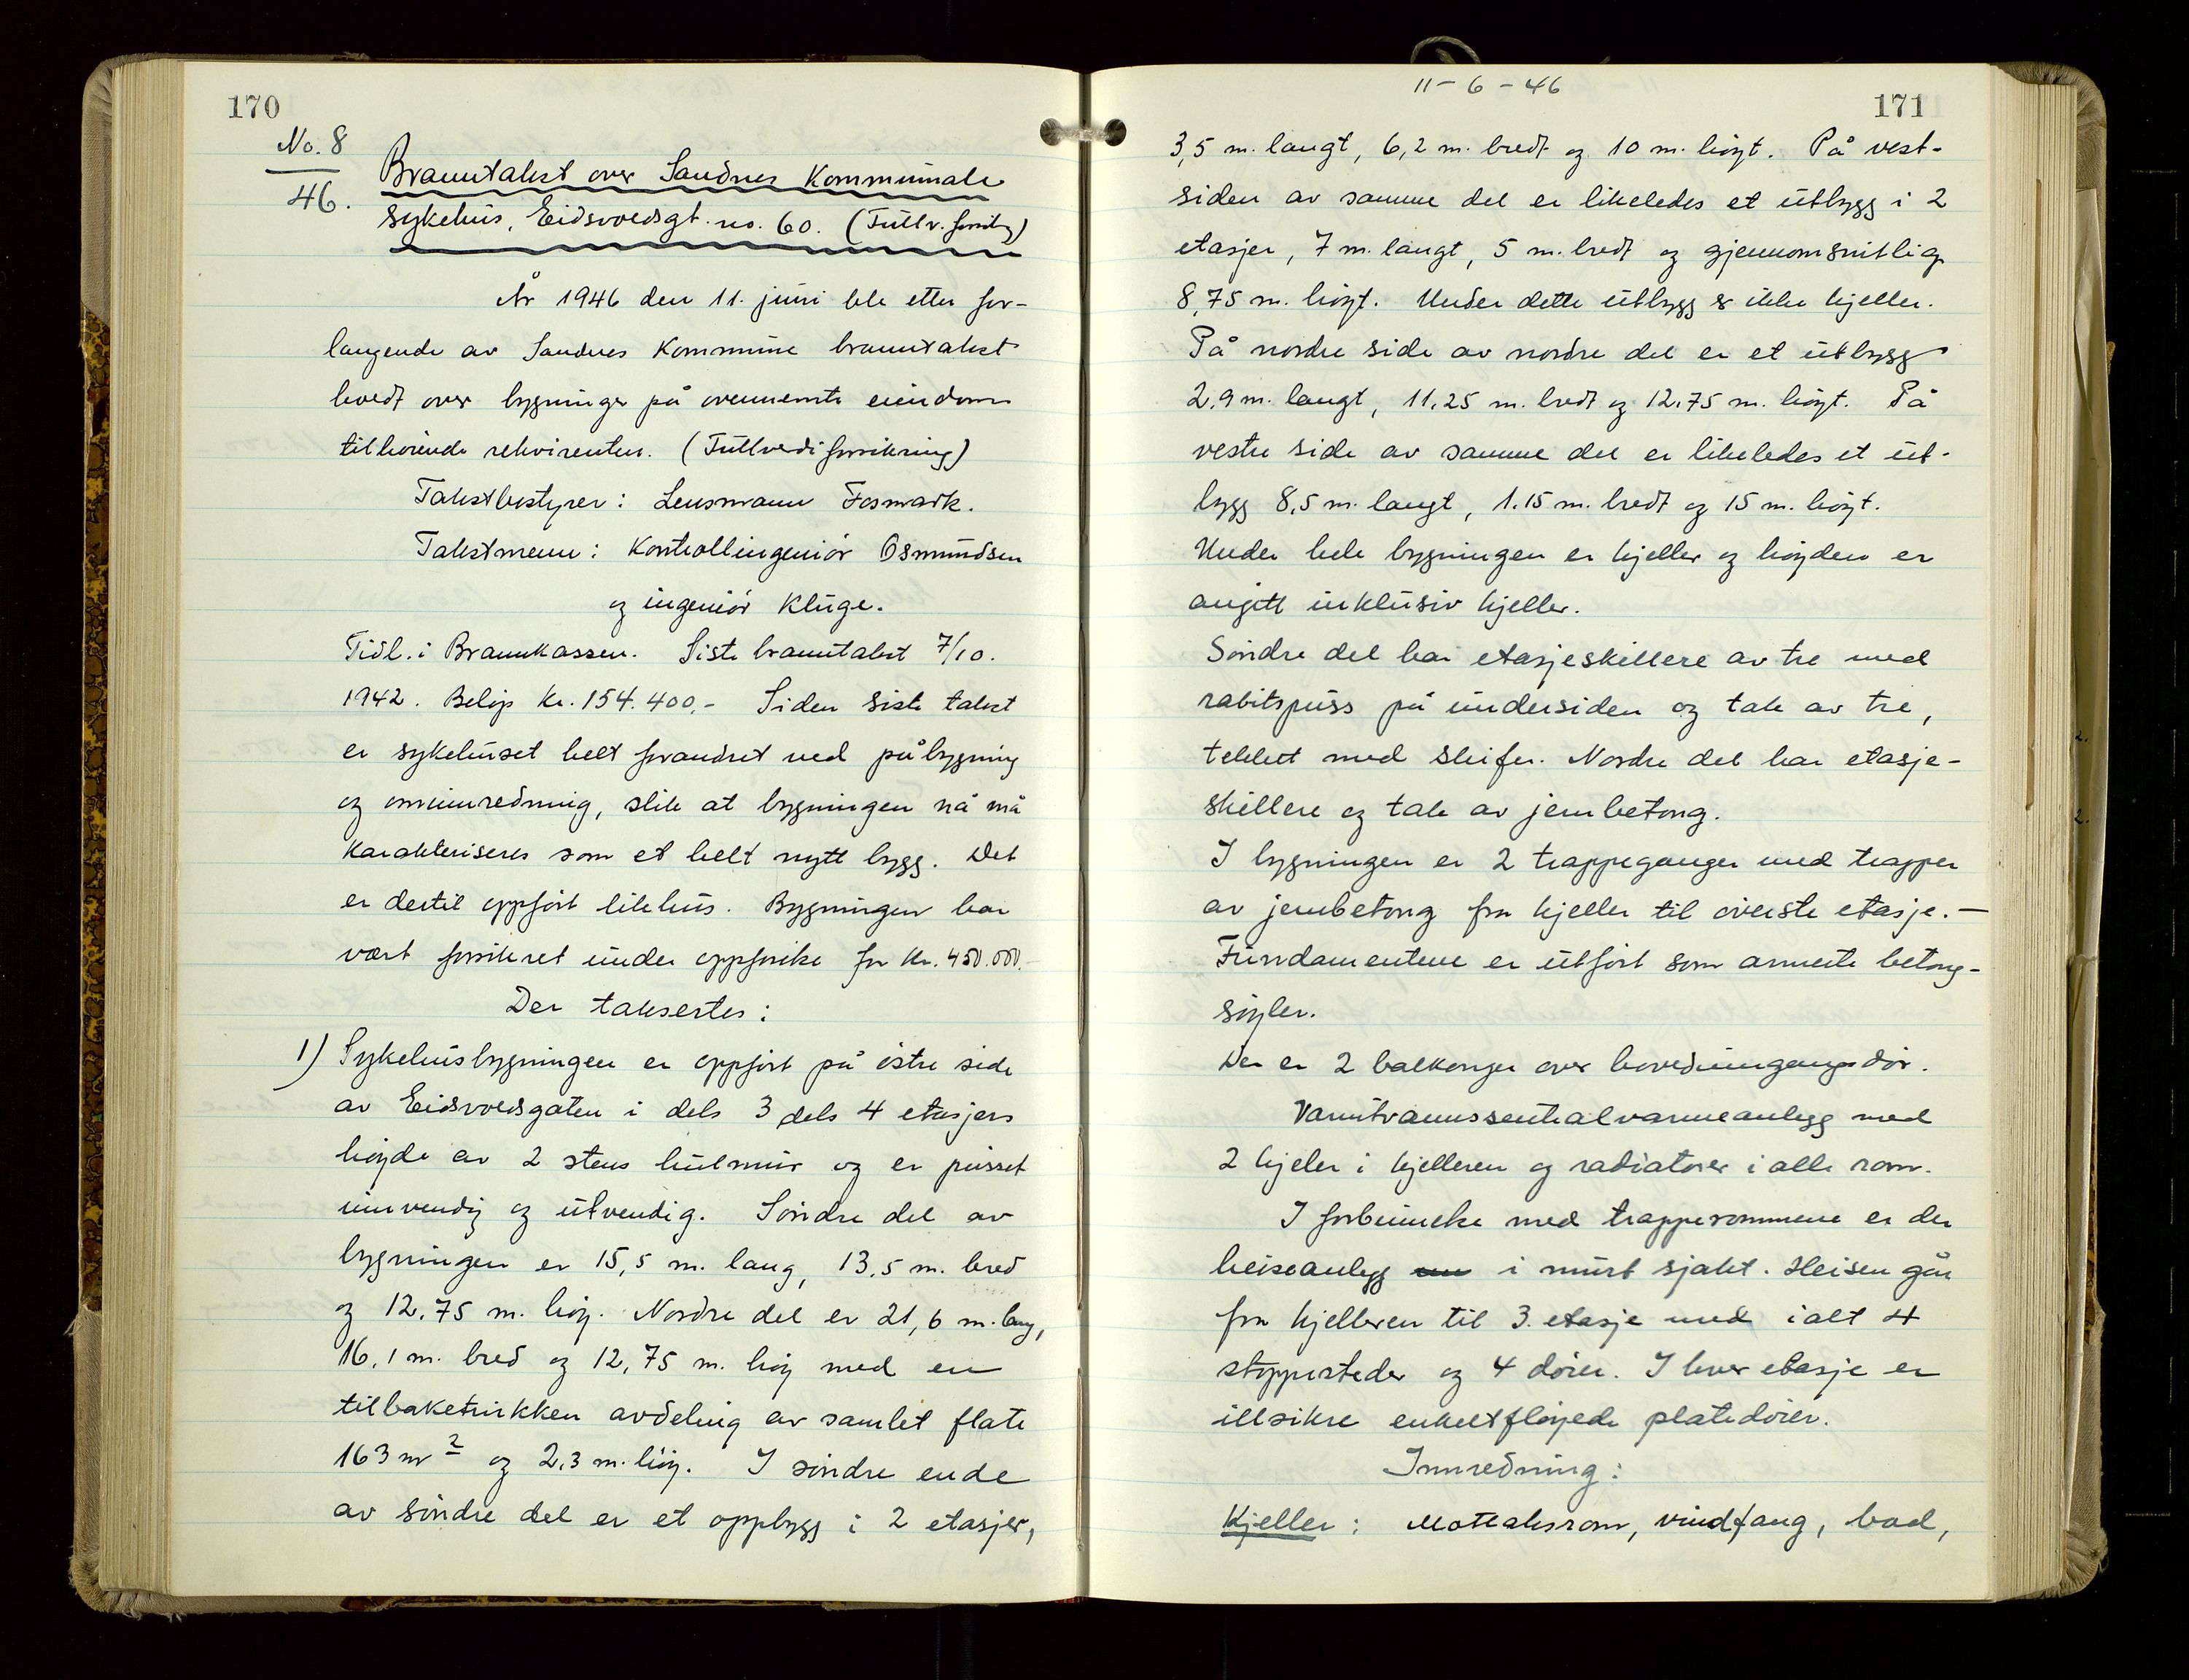 170
No. 8
46.
Branntakst over Sandnes Kommunale
sykehus, Eidsvoldsgt. no. 60. (Fullv. forsikrg)
År 1946 den 11. juni ble etter for-
langende av Sandnes Kommune branntakst
holdt over bygninger på ovennemte eiendom
tilhørende rekvirenten. (Fullverdiforsikring)
Takstbestyrer: Lensmann Fosmark.
Takstmenn: Kontrollingeniør Osmundsen
og ingeniør Kluge.
Tidl. i Brannkassen. Siste branntakst 7/10.
1942. Beløp Kr. 154.400,- Siden siste takst
er sykehuset helt forandret ved påbygning
og ominnredning, slik at bygningen nå må
karakteriseres som et helt nytt bygg. Det
er dertil oppført likhus. Bygningen har
vært forsikret under oppførike for Kr. 450.000.-
Der takseres:
1) Sykehusbygningen er oppført på østre side
av Eidsvoldsgaten i dels 3 dels 4 etasjers
høyde av 2 stens hulmur og er pusset
innvendig og utvendig. Søndre del av
bygningen er 15,5 m. lang, 13,5 m. bred
og 12,75 m. høy. Nordre del er 21,6 m. lang,
16,1 m. bred og 12,75 m. høy med en
tilbaketrukken avdeling av samlet flate
163 m2 og 2,3 m. høy. I søndre ende
av søndre del er et oppbygg i 2 etasjer,
11-6-46
171
3,5 m. langt, 6,2 m. bredt og 10 m. høyt. På vest-
siden av samme del er likeledes et utbygg i 2
etasjer, 7 m. langt, 5 m. bredt og gjennomsnitlig
8,75 m. høyt. Under dette utbygg er ikke kjeller.
På nordre side av nordre del er et utbygg
2,9 m. langt, 11,25 m. bredt og 12,75 m. høyt. På
vestre side av samme del er likeledes et ut-
bygg 8,5 m. langt, 1.15 m. bredt og 15 m. høyt.
Under hele bygningen er kjeller og høyden er
angitt inklusiv kjeller.
Søndre del har etasjeskillere av tre med
rabitspuss på undersiden og tak av tre,
tekket med skifer. Nordre del har etasje-
skillere og tak av jernbetong.
I bygningen er 2 trappeganger med trapper
av jernbetong fra kjeller til øverste etasje. —
Fundamentene er utført som armerte betong-
søyler.
Der er 2 balkonger over hovedinngangsdør.
Varmtvannssentralvarmeanlegg med
2 kjeler i kjelleren og radiatorer i alle rom.
I forbindelse med trapperommene er der
heiseanlegg i murt sjakt. Heisen går
fra kjelleren til 3. etasje med ialt 4
stoppesteder og 4 dører. I hver etasje er
illsikre enkeltfløyede platedører.
Innredning:
Kjeller: Mottaksrom, vindfang, bad,